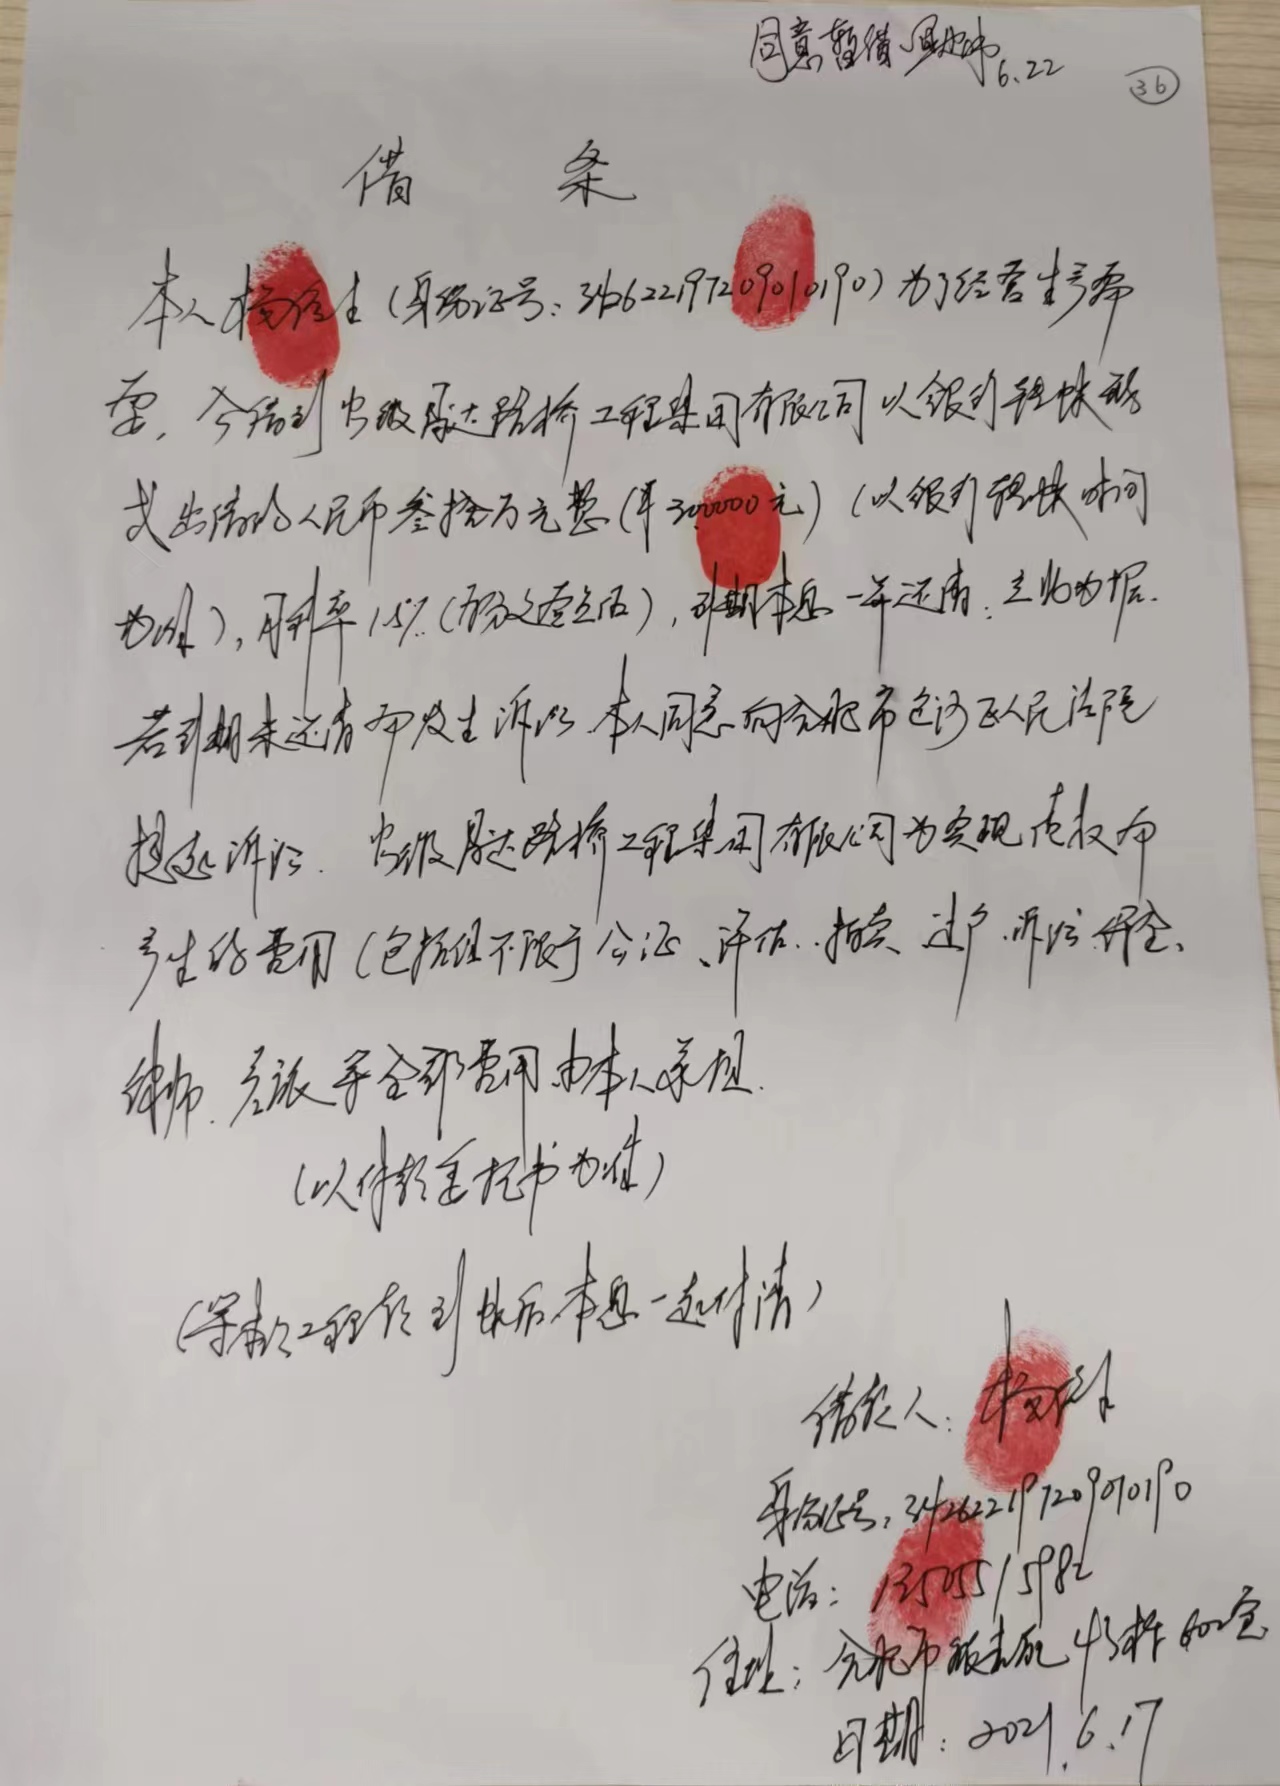 同意暂借 6.22
36
借 条
本人杨 生（身份证号：342622197209010190）为了经营生产需
要，今借到安徽晟达路桥工程集团有限公司以银行转账形
式出借的人民币叁拾万元整（¥300000元）（以银行转账时间
为准），月利率1.5%（ ），到期本息一并还清，立此为据.
若到期未还清而发生诉讼 本人同意向合肥市包河区人民法院
提起诉讼. 安徽晟达路桥工程集团有限公司为实现债权而
产生的费用（包括但不限于公证、评估、拍卖、过户、诉讼、保全、
律师、差旅等全部费用由本人承担.
（以付款委托书为准）
（ 工程款到账后本息一起付清）
借款人：杨 生
身份证号：342622197209010190
电话：13505515982
住址：合肥市 43栋602室
日期：2021.6.17